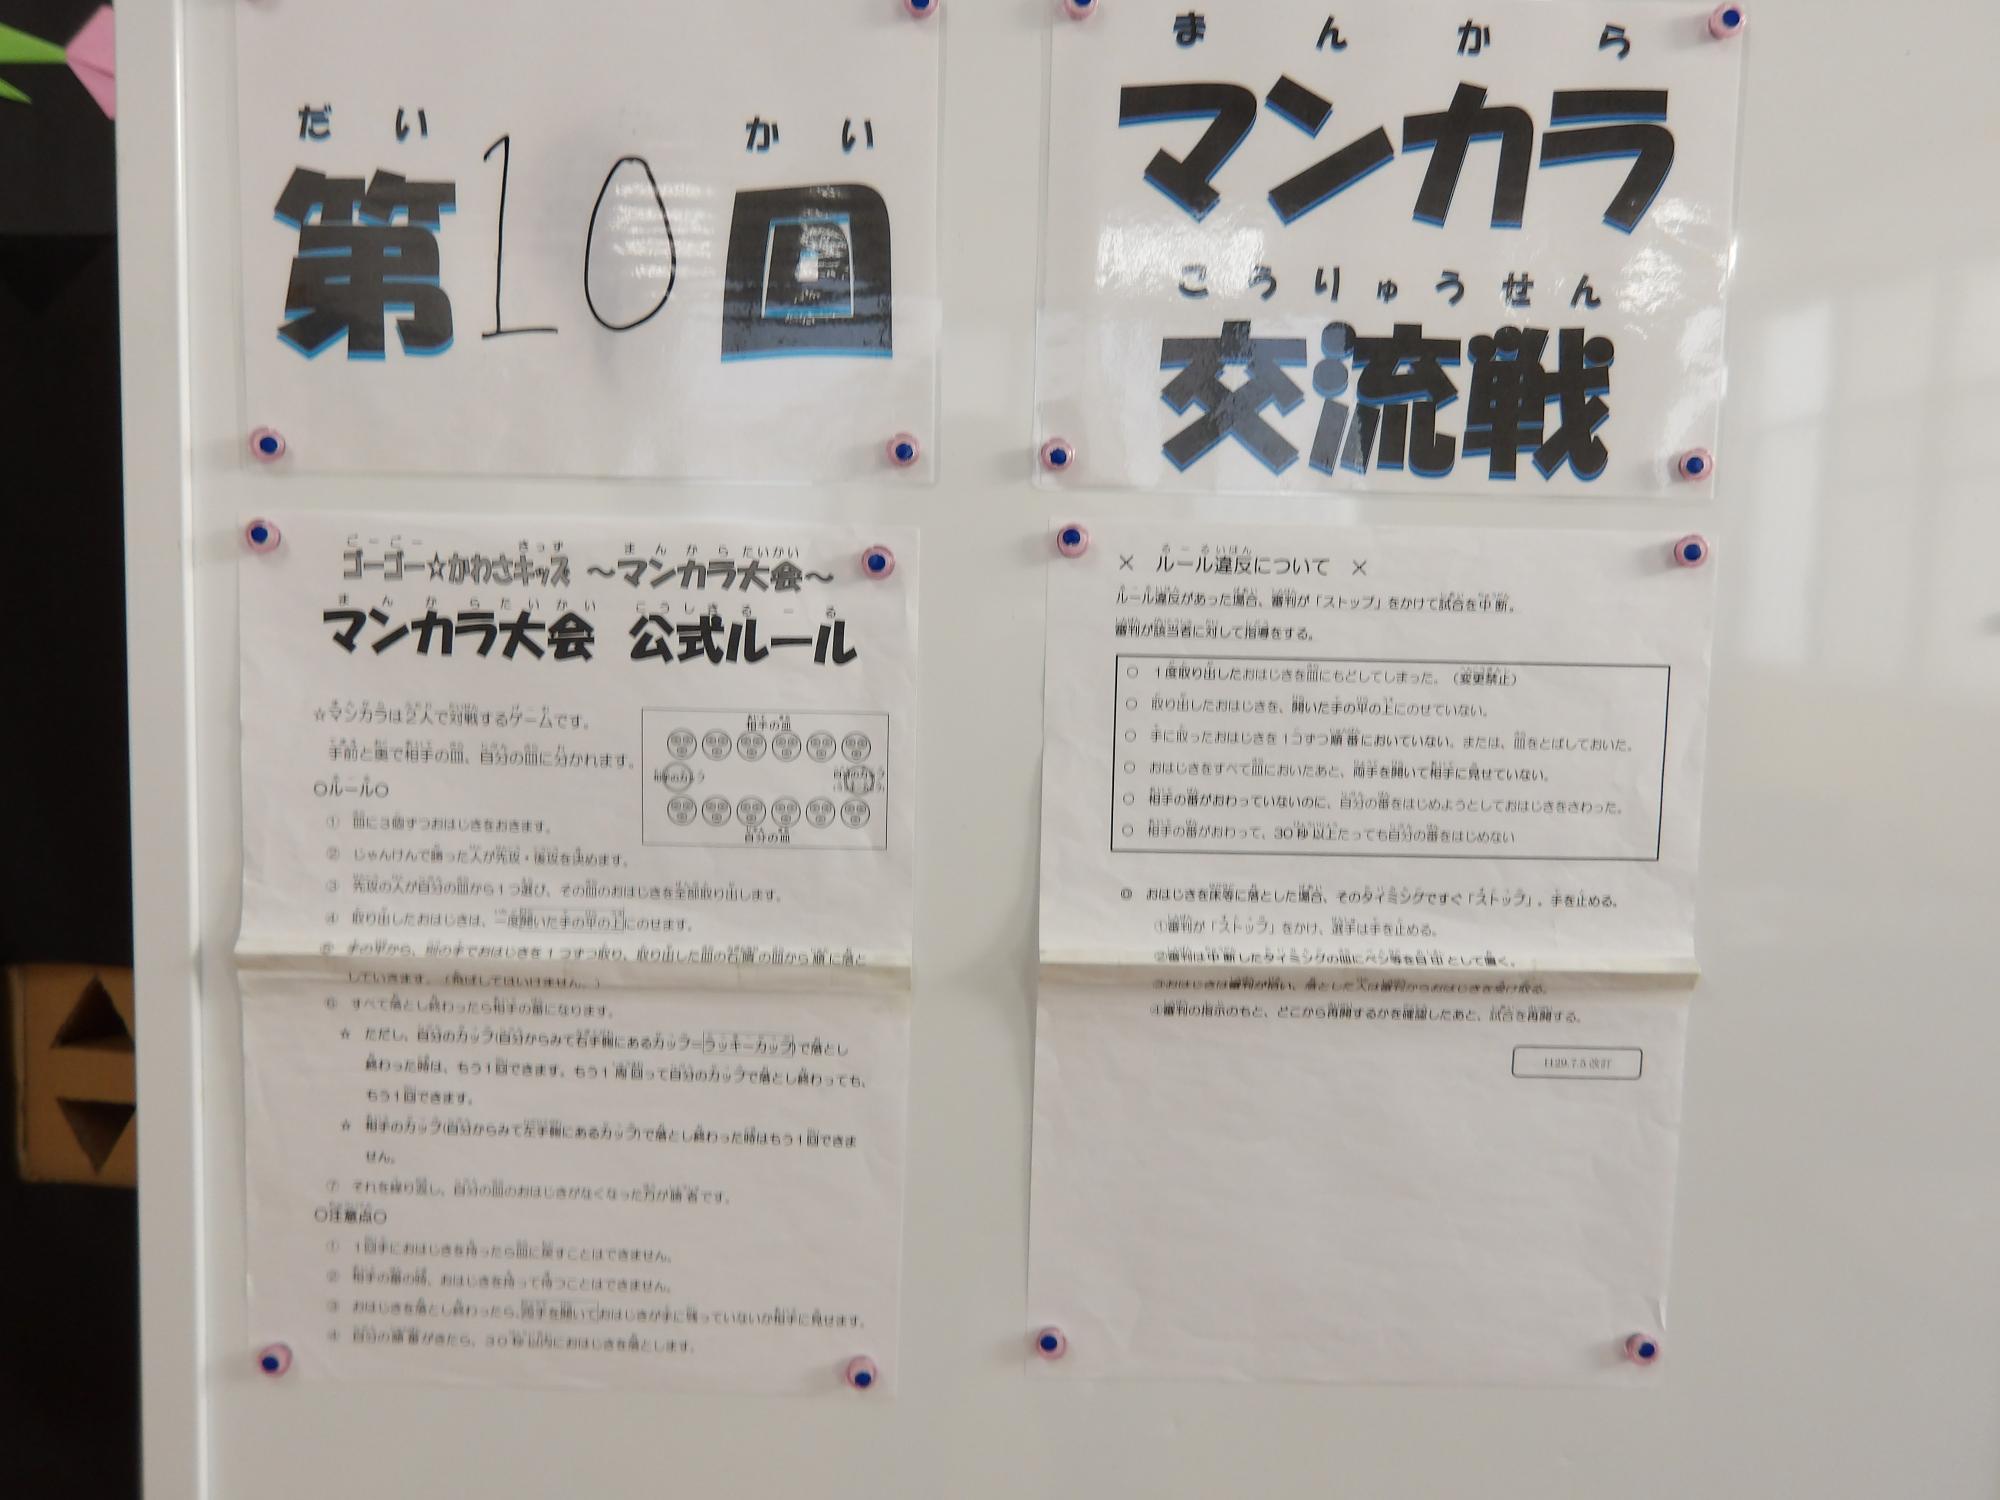 だい かい
第10回
まんから
マンカラ
こうりゅうせん
交流戦
ごーごー きっず まんからたいかい
ゴーゴー☆かわさキッズ ～マンカラ大会～
まんからたいかい こうしきるーる
マンカラ大会 公式ルール
☆マンカラは2人で対戦するゲームです。
手前と奥で相手の皿、自分の皿に分かれます。
相手の皿
相手のカップ
自分のカップ
自分の皿
○ルール○
① 皿に3個ずつおはじきをおきます。
② じゃんけんで勝った人が先攻・後攻を決めます。
③ 先攻の人が自分の皿から1つ選び、その皿のおはじきを全部取り出します。
④ 取り出したおはじきは、一度開いた手の平の上にのせます。
⑤ 手の平から、別の手でおはじきを1つずつ取り、取り出した皿の右隣の皿から順に落と
していきます。（飛ばしてはいけません。）
⑥ すべて落とし終わったら相手の番になります。
☆ ただし、自分のカップ(自分からみて右手側にあるカップ=ラッキーカップ)で落とし
終わった時は、もう1回できます。もう1周回って自分のカップで落とし終わっても、
もう1回できます。
☆ 相手のカップ(自分からみて左手側にあるカップ)で落とし終わった時はもう1回できま
せん。
⑦ それを繰り返し、自分の皿のおはじきがなくなった方が勝者です。
○注意点○
① 1回手におはじきを持ったら皿に戻すことはできません。
② 相手の番の時、おはじきを持って待つことはできません。
③ おはじきを落とし終わったら、両手を開いておはじきが手に残っていないか相手に見せます。
④ 自分の順番がきたら、30秒以内におはじきを落とします。
るーるいはん
× ルール違反について ×
ルール違反があった場合、審判が「ストップ」をかけて試合を中断。
審判が該当者に対して指導をする。
○ 1度取り出したおはじきを皿にもどしてしまった。（変更禁止）
○ 取り出したおはじきを、開いた手の平の上にのせていない。
○ 手に取ったおはじきを1コずつ順番においていない。または、皿をとばしておいた。
○ おはじきをすべて皿においたあと、両手を開いて相手に見せていない。
○ 相手の番がおわっていないのに、自分の番をはじめようとしておはじきをさわった。
○ 相手の番がおわって、30秒以上たっても自分の番をはじめない
◎ おはじきを床等に落とした場合、そのタイミングですぐ「ストップ」。手を止める。
①審判が「ストップ」をかけ、選手は手を止める。
②審判は中断したタイミングの皿にペン等を目印として置く。
③おはじきは審判が拾い、落とした人は審判からおはじきを受け取る。
④審判の指示のもと、どこから再開するかを確認したあと、試合を再開する。
H29.7.5改訂